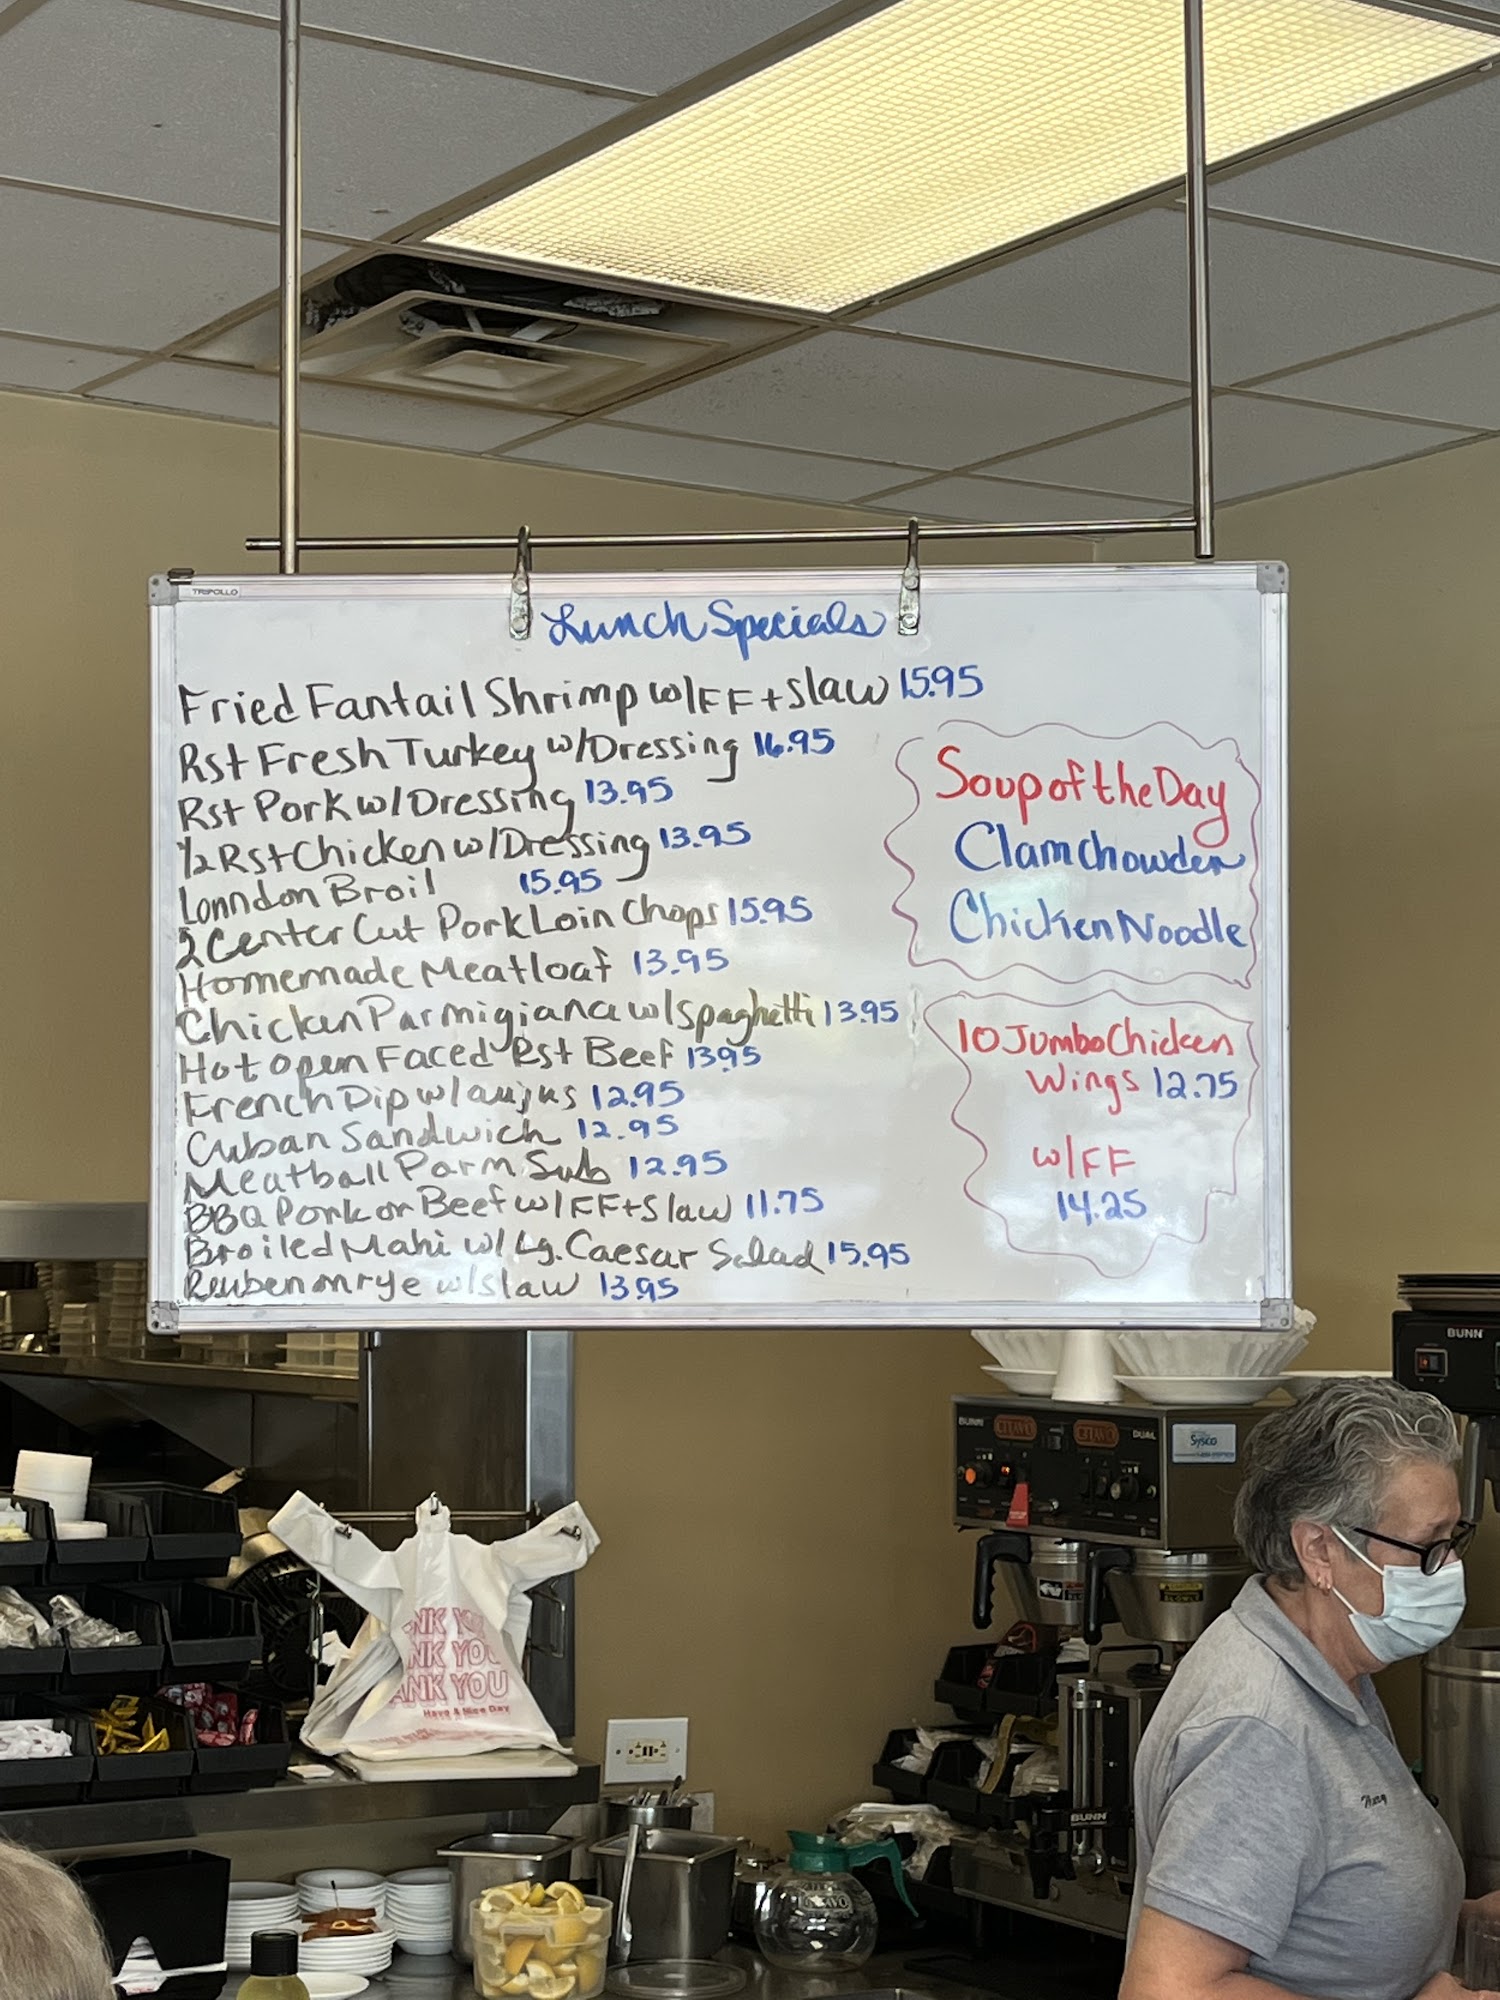 TRIPOLLO
Lunch Specials
Fried Fantail Shrimp w/FF + Slaw 15.95
Rst Fresh Turkey w/Dressing 16.95
Rst Pork w/Dressing 13.95
1/2 Rst Chicken w/Dressing 13.95
Lonndon Broil 15.95
2 Center Cut Pork Loin Chops 15.95
Homemade Meatloaf 13.95
Chicken Parmigiana w/Spaghetti 13.95
Hot open Faced Rst Beef 13.95
French Dip w/aujus 12.95
Cuban Sandwich 12.95
Meatball Parm Sub 12.95
BBQ Pork or Beef w/FF+Slaw 11.75
Broiled Mahi w/Lg. Caesar Salad 15.95
Reuben on rye w/slaw 13.95
Soup of the Day
Clam Chowder
Chicken Noodle
10 Jumbo Chicken
Wings 12.75
w/FF
14.25
BUNN
BUNN
DUAL
Sysco
NK YO
NK YOU
ANK YOU
Have A Nice Day
BUNN